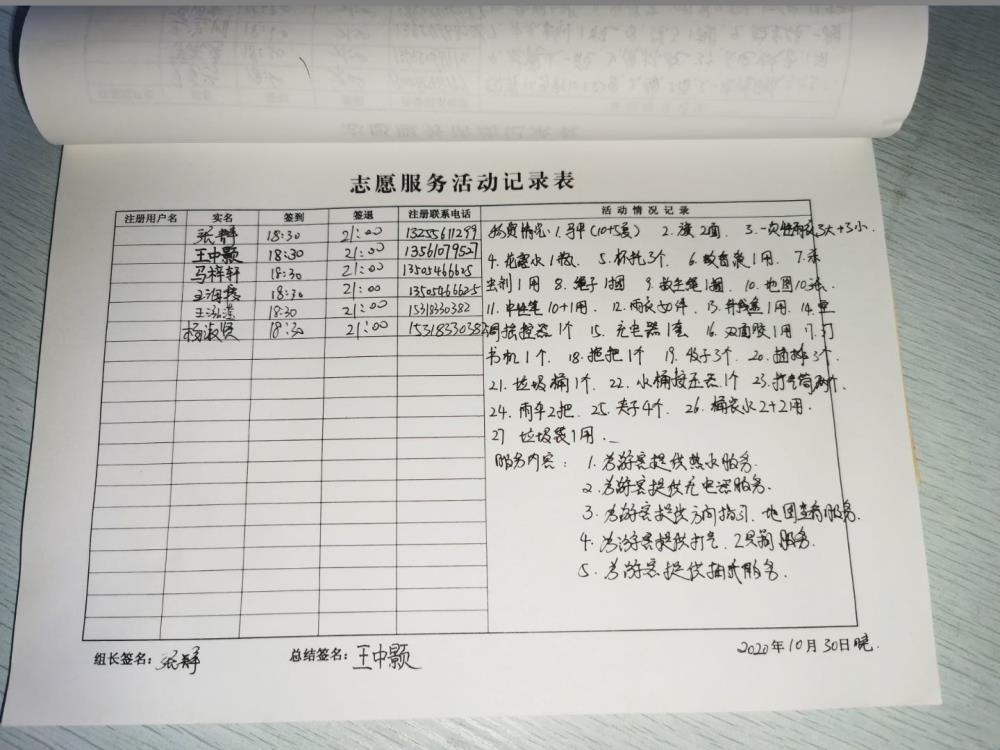 志愿服务活动记录表
注册用户名 实名 签到 签退 注册联系电话 活动情况记录
张静 18:30 21:00 13255611299
王中颢 18:30 21:00 13561079527
马梓轩 18:30 21:00 13505466625
18:30 21:00 13505466625
18:30 21:00 15318330382
杨淑贤 18:30 21:00 1531833038
物资情况:1.马甲(10+5蓝) 2.旗2面 3.一次性雨衣3大+3小.
4.花露水1瓶. 5.杯托3个. 6.蚊香液1用. 7.杀
虫剂1用 8.绳子1捆 9.救生绳1捆. 10.地图10张.
11.中性笔10+1用. 12.雨衣50件 13.针线盒1用. 14.空
调摇控器1个 15.充电器1套 16.双面胶1用 17.订
书机1个. 18.拖把1个 19.板子3个. 20.插排3个.
21.垃圾桶1个. 22.水桶按压器1个 23.打气筒两个.
24.雨伞2把. 25.夹子4个. 26.桶装水2+2用.
27 垃圾袋1用.
服务内容: 1.为游客提供热水服务.
2.为游客提供充电源服务.
3.为游客提供方向指引.地图查看服务.
4.为游客提供打气. 服务.
5.为游客提供抽纸服务.
组长签名:张静 总结签名:王中颢 2020年10月30日晚.